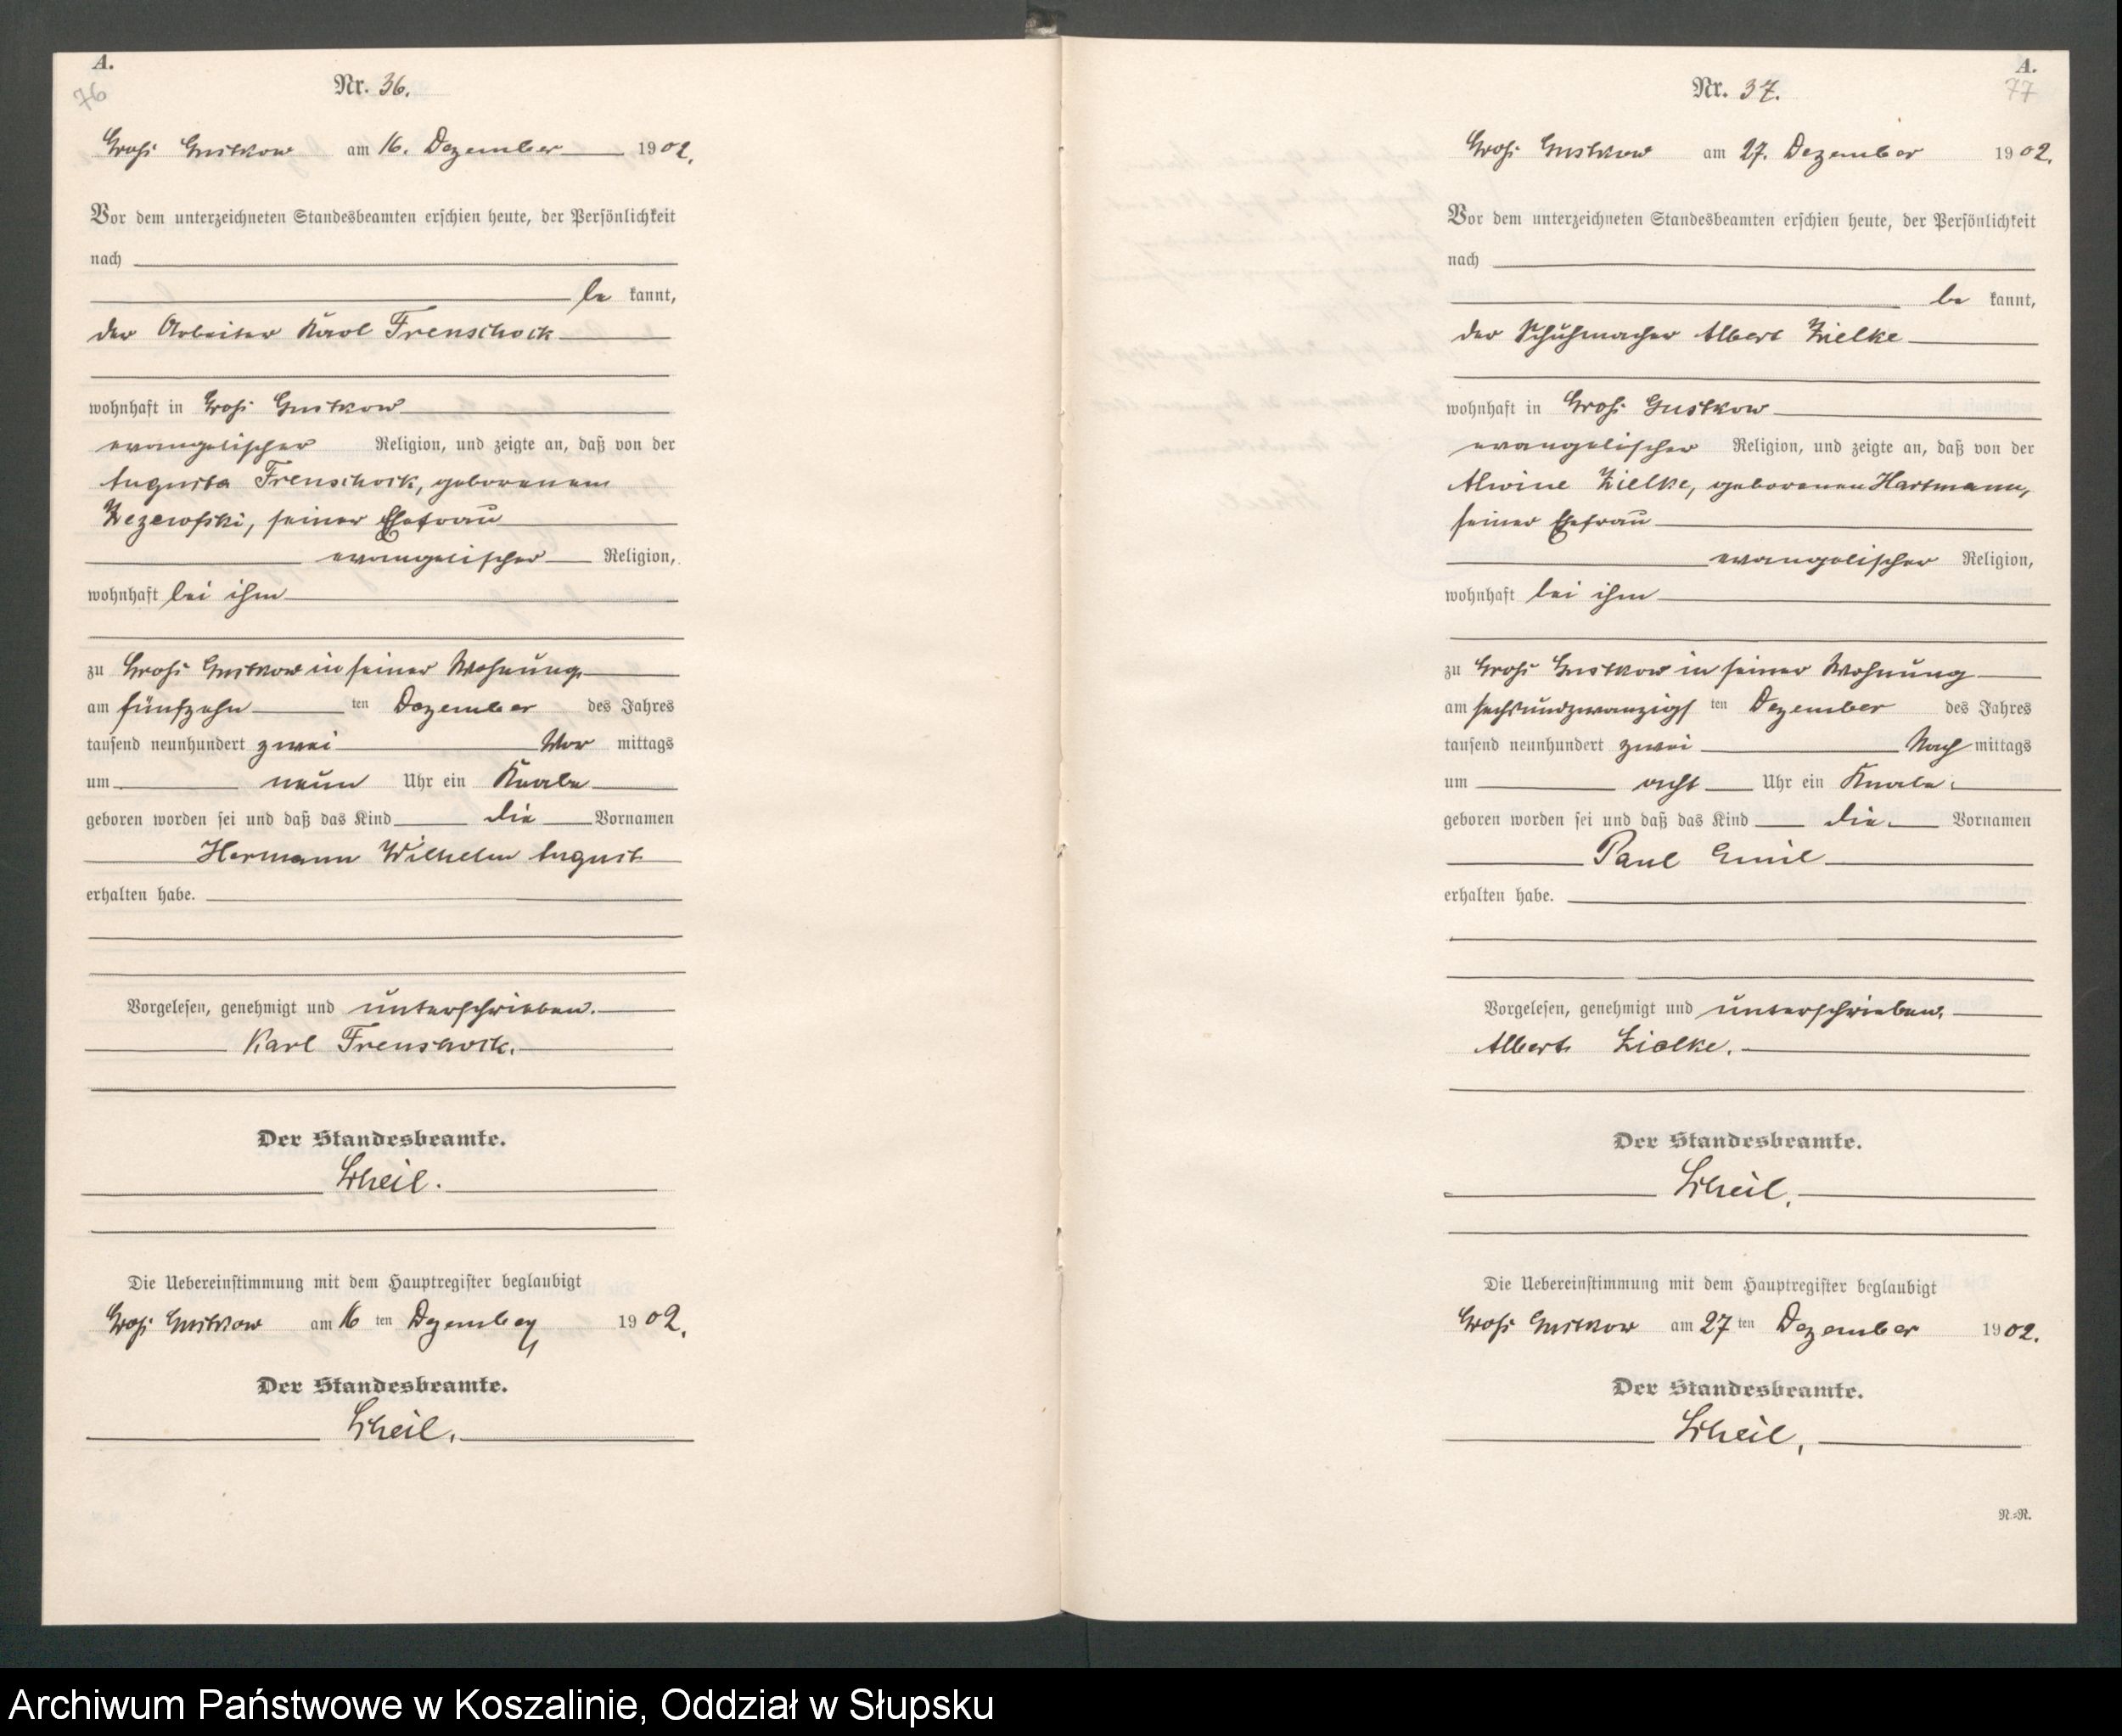 A.
76
Nr. 36.
Groß Gustkow am 16. Dezember 1902.
Vor dem unterzeichneten Standesbeamten erschien heute, der Persönlichkeit
nach
be kannt,
der Arbeiter Karl Frenschock
wohnhaft in Groß Gustkow
evangelischer Religion, und zeigte an, daß von der
Augusta Frenschock, geborenen
seiner Ehefrau
evangelischer Religion,
wohnhaft bei ihm
zu Groß Gustkow in seiner Wohnung
am fünfzehn ten Dezember des Jahres
tausend neunhundert zwei Vor mittags
um neun Uhr ein Knabe
geboren worden sei und daß das Kind die Vornamen
Hermann Wilhelm August
erhalten habe.
Vorgelesen, genehmigt und unterschrieben.
Karl Frenschock.
Der Standesbeamte.
Scheil.
Die Uebereinstimmung mit dem Hauptregister beglaubigt
Groß Gustkow am 16 ten Dezember 1902.
Der Standesbeamte.
Scheil.
A.
77
Nr. 37.
Groß Gustkow am 27. Dezember 1902.
Vor dem unterzeichneten Standesbeamten erschien heute, der Persönlichkeit
nach
be kannt,
der Schuhmacher Albert Zielke
wohnhaft in Groß Gustkow
evangelischer Religion, und zeigte an, daß von der
Alwine Zielke, geborenen Hartmann,
seiner Ehefrau
evangelischer Religion,
wohnhaft bei ihm
zu Groß Gustkow in seiner Wohnung
am sechsundzwanzigs ten Dezember des Jahres
tausend neunhundert zwei Nach mittags
um acht Uhr ein Knabe
geboren worden sei und daß das Kind die Vornamen
Paul Emil
erhalten habe.
Vorgelesen, genehmigt und unterschrieben.
Albert Zielke.
Der Standesbeamte.
Scheil.
Die Uebereinstimmung mit dem Hauptregister beglaubigt
Groß Gustkow am 27 ten Dezember 1902.
Der Standesbeamte.
Scheil.
N.=N.
Archiwum Państwowe w Koszalinie, Oddział w Słupsku